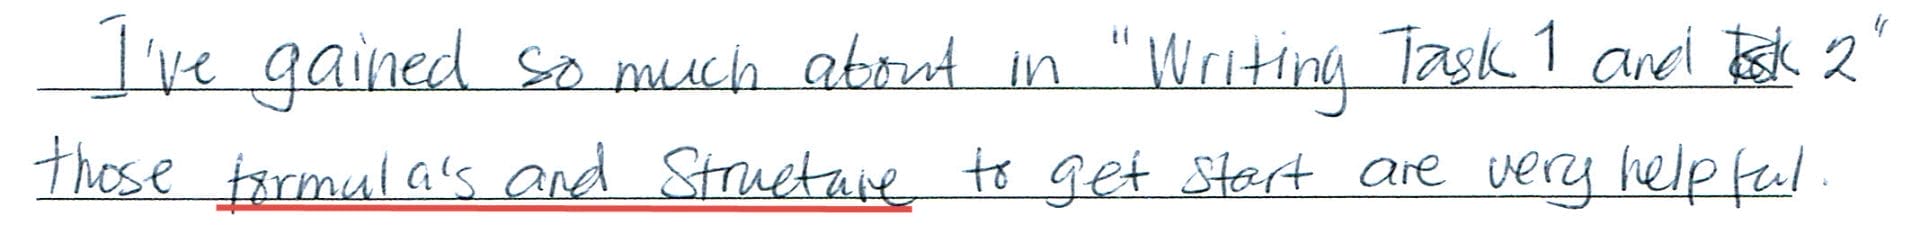 I've gained so much about in "Writing Task 1 and Task 2"
those formula's and Structure to get start are very helpful.